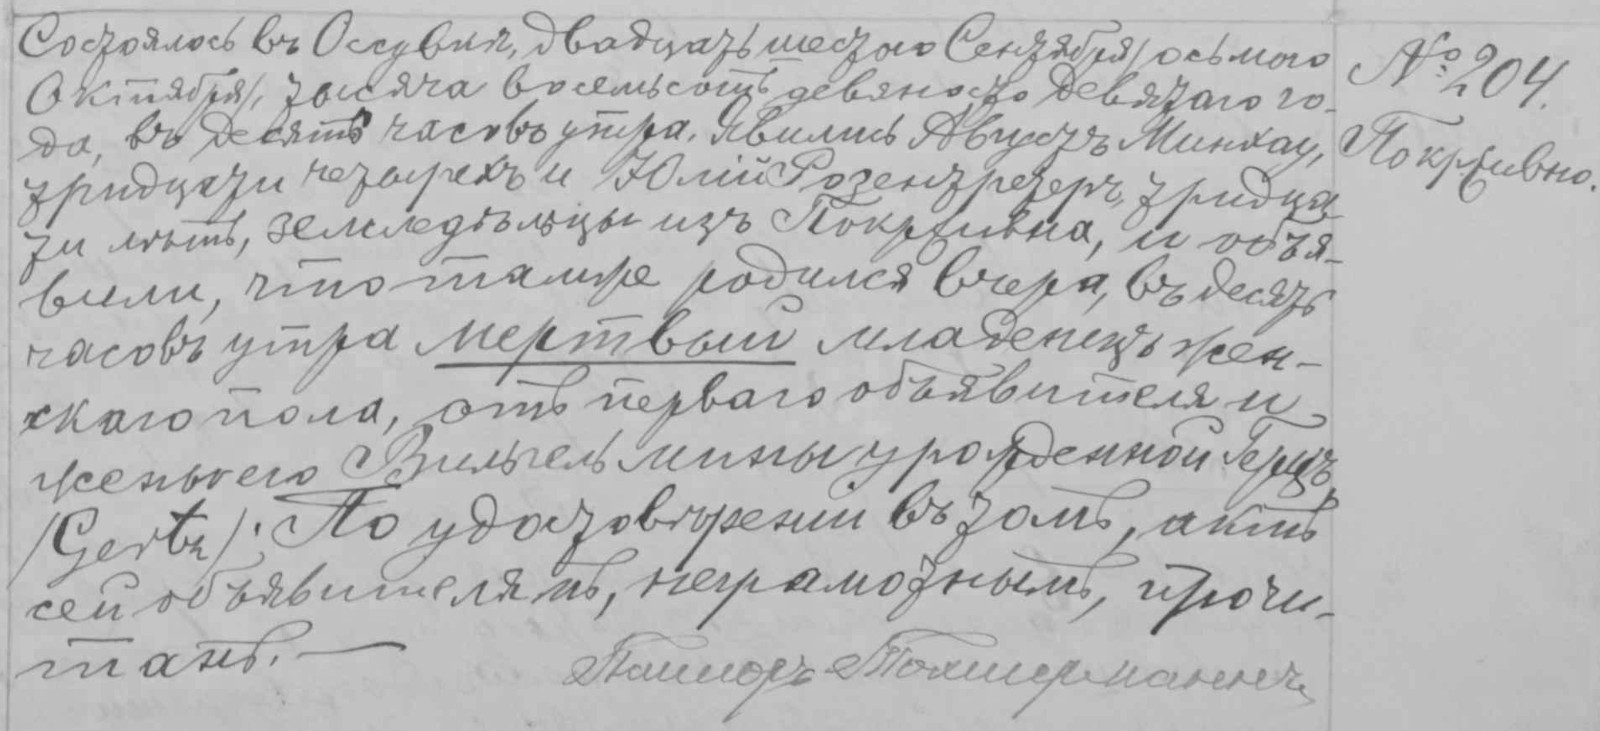 Состоялось въ Оссувкѣ, двадцать шестаго Сентября /осьмого
Октября/, тысяча восемьсотъ девяносто девятаго го-
да, въ десять часовъ утра. Явились Августъ Минхау,
тридцати четырехъ и Юлій Розентретеръ, тридца
ти лѣтъ, земледѣльцы изъ Покрживна, и объя-
вили, что тамже родился вчера, въ десять
часовъ утра мертвый младенецъ жен-
скаго пола, отъ перваго объявителя и
жены его Вильгельмины урожденной Герцъ
/Gertz/. По удостовѣреніи въ томъ, актъ
сей объявителямъ, неграмотнымъ, прочи-
танъ. —
Пасторъ
№ 204.
Покрживно.